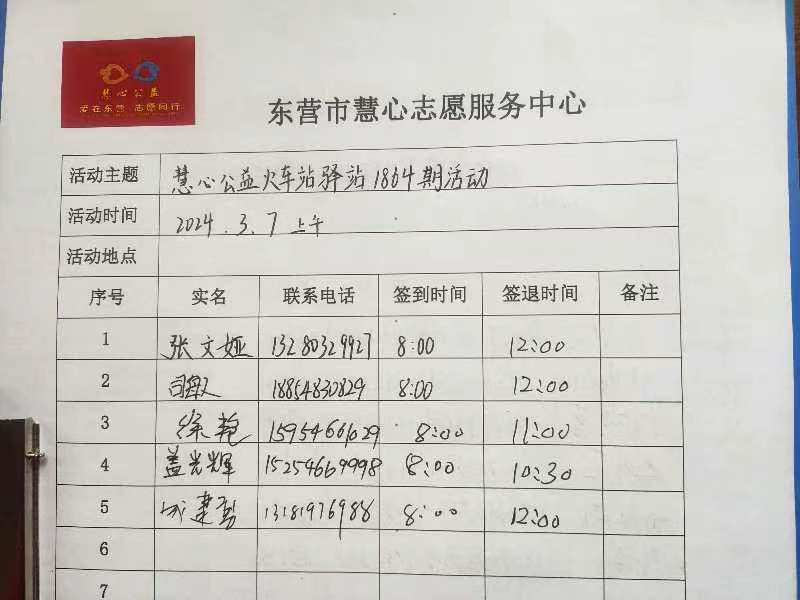 慧心公益
志在东营 志愿同行
东营市慧心志愿服务中心
活动主题 慧心公益火车站驿站1864期活动
活动时间 2024.3.7 上午
活动地点
序号 实名 联系电话 签到时间 签退时间 备注
1 张文娅 13280329927 8:00 12:00
2 司敏 18854830829 8:00 12:00
3 徐艳 15954661629 8:00 11:00
4 盖光辉 15254669998 8:00 10:30
5 13181976988 8:00 12:00
6
7